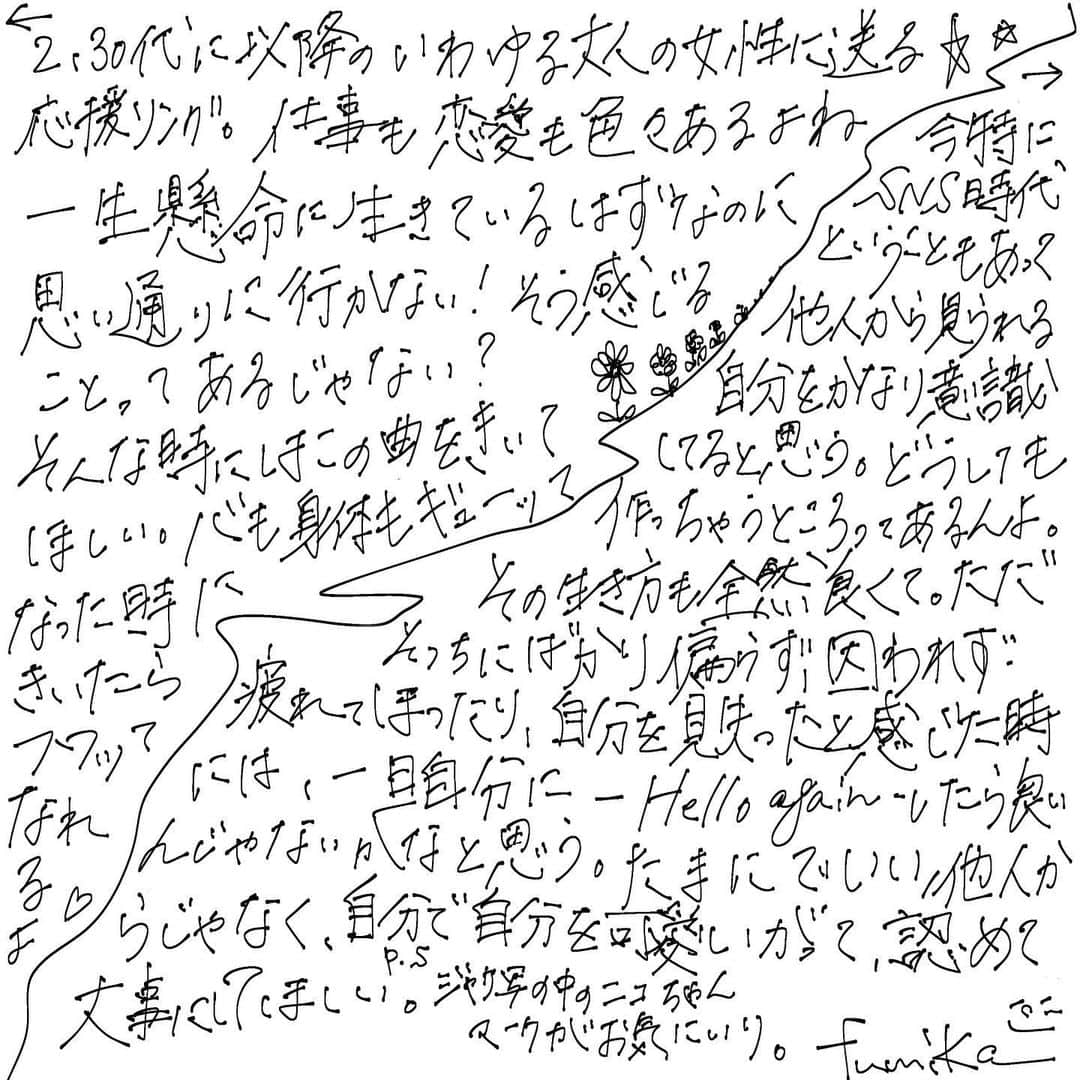 2、30代に以降のいわゆる大人の女性に送る
応援ソング。仕事も恋愛も色々あるよね
一生懸命に生きているはずなのに
思い通りに行かない！そう感じる
ことってあるじゃない？
そんな時にはこの曲をきいて
ほしい。心も身体もギューッて
なった時に
きいたら
フワッて
なれ
る
よ
今特に
SNS時代
ということもあって
他人から見られる
自分をかなり意識
してると思う。どうしても
作っちゃうところってあるんよ。
その生き方も全然良くて。ただ
そっちにばかり偏らず、囚われず…
疲れてしまったり、自分を見失ったと感じた時
には、一旦自分に-Hello again-したら良い
んじゃないかなと思う。たまにでいい、他人か
らじゃなく、自分で自分を可愛いがって、認めて
大事にしてほしい。
p.s
ジャケ写の中のニコちゃん
マークがお気にいり。
fumika